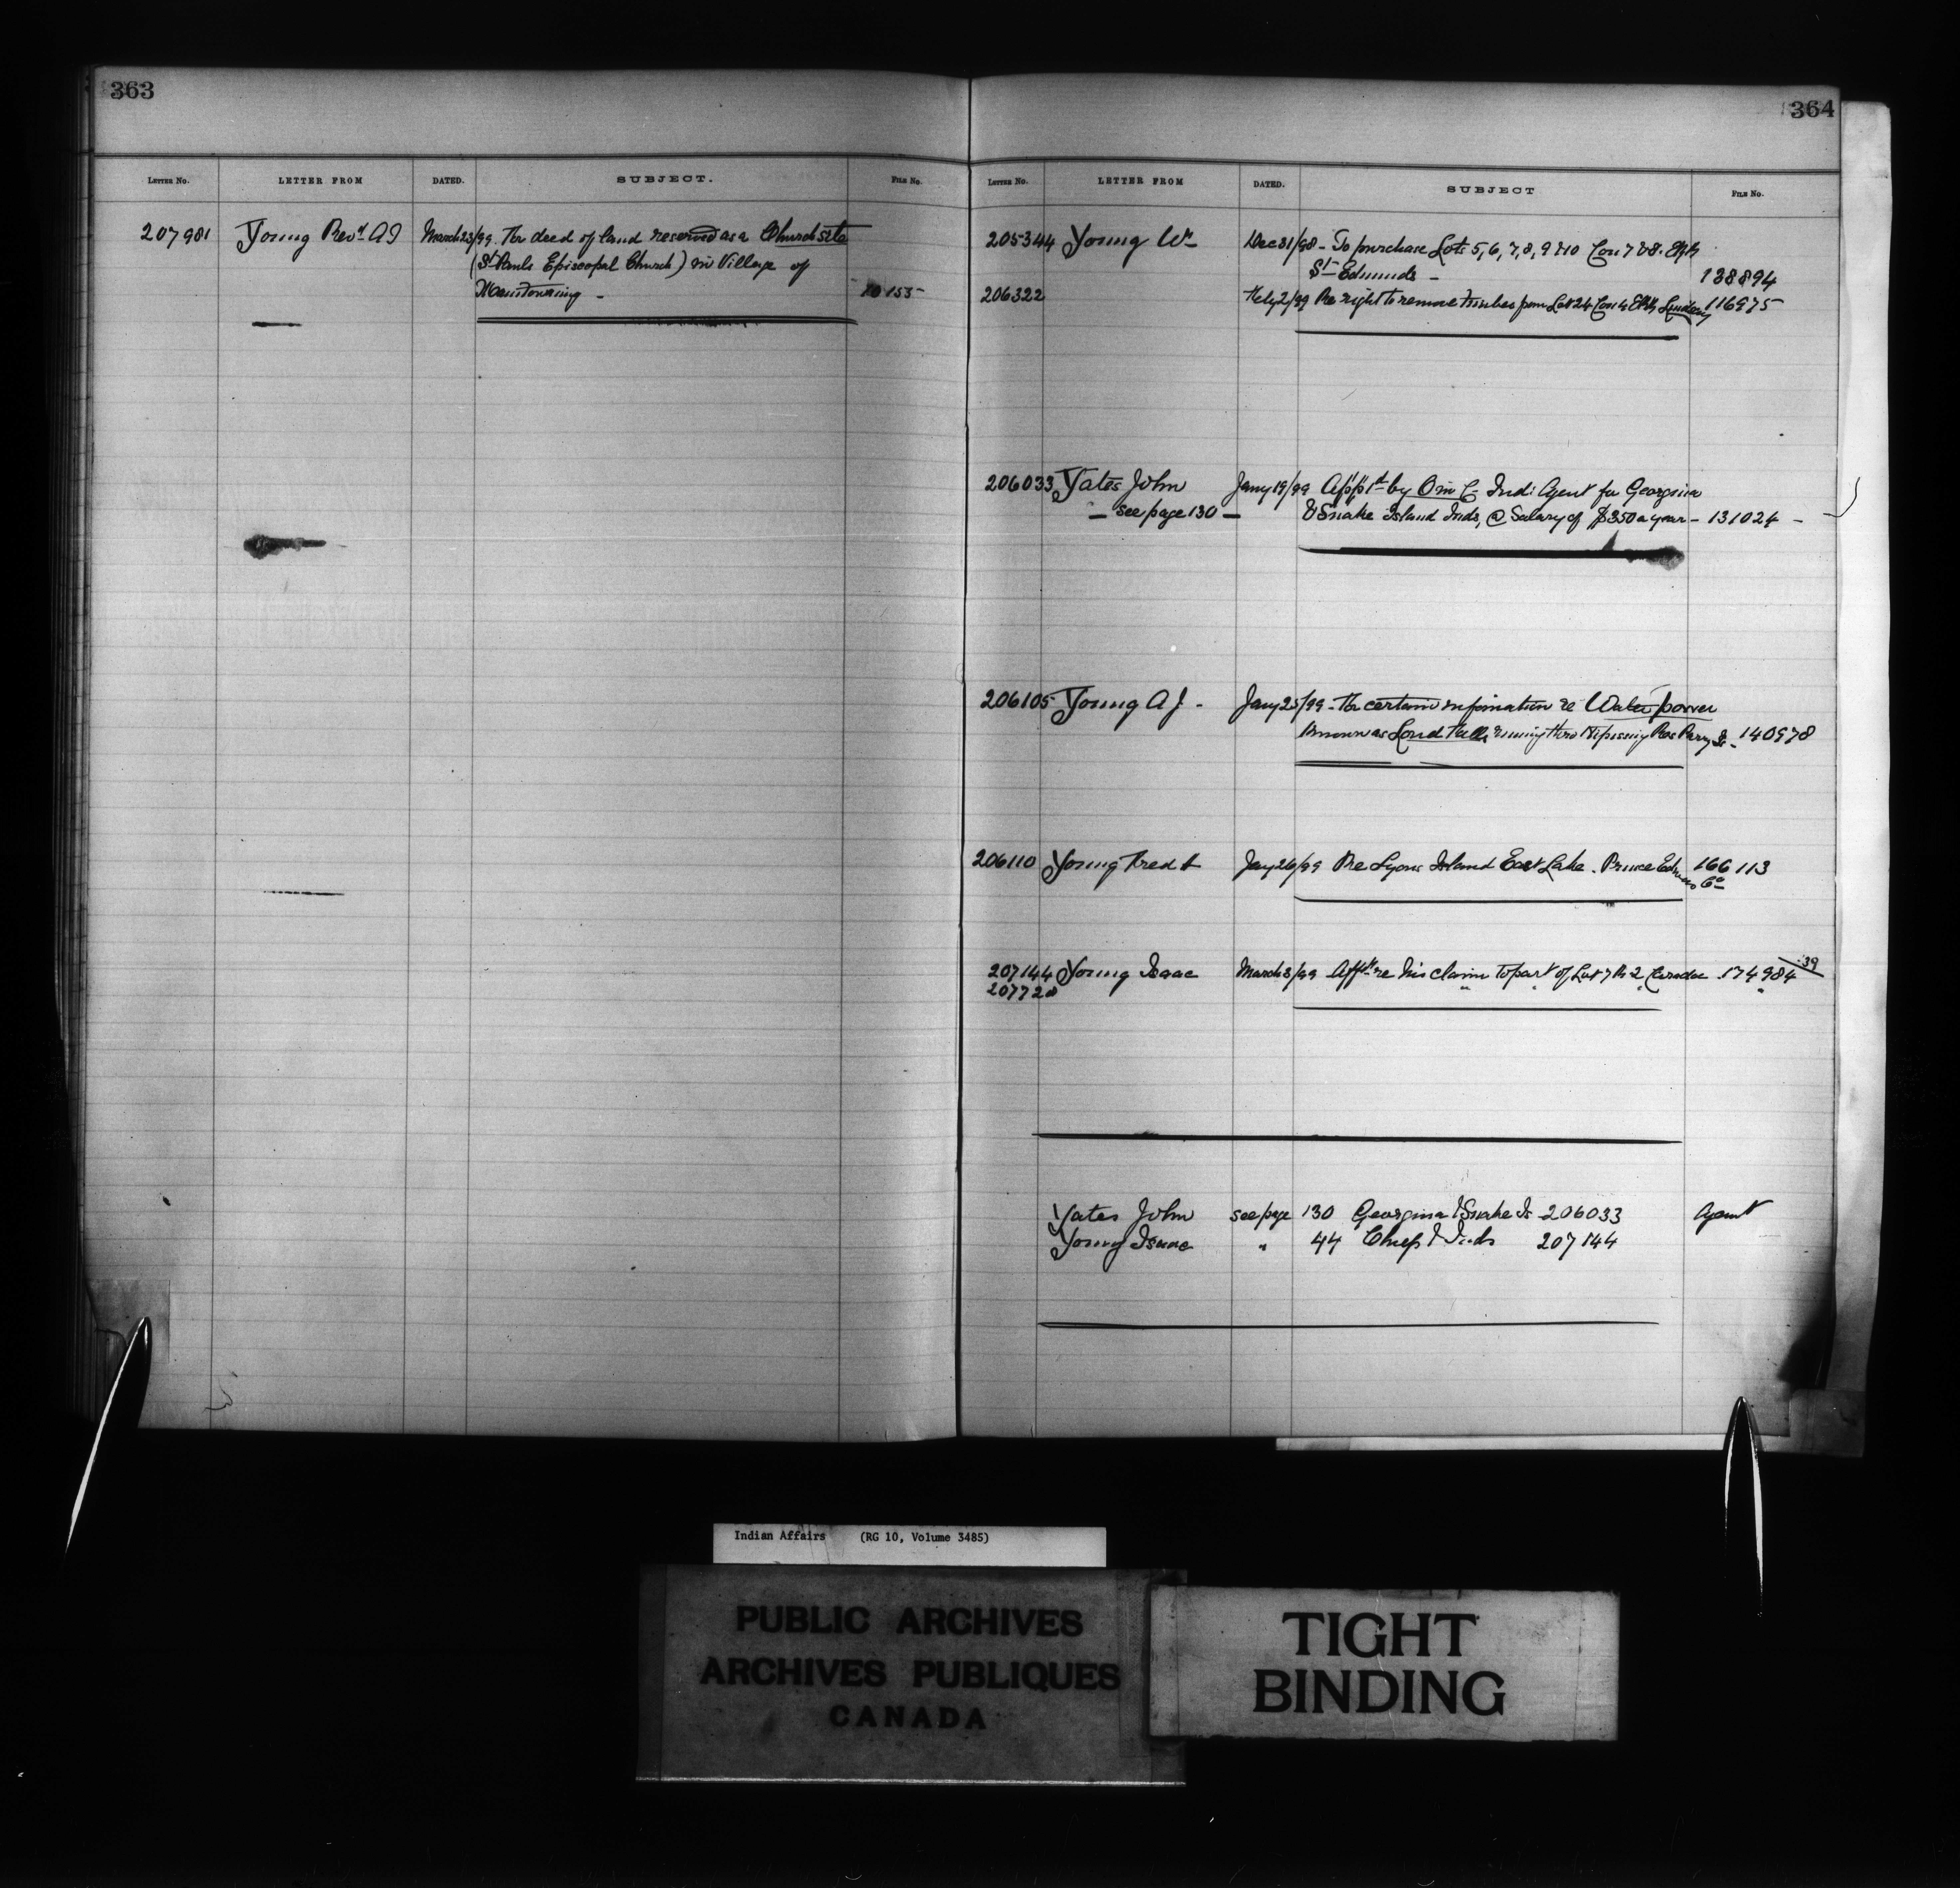 363
LETTER NO. LETTER FROM DATED. SUBJECT. FILE NO.
207981 Young Revd. A J March 23/99. For deed of land reserved as a Church site
(St. Pauls Episcopal Church) in Village of
Manitowaning - 10155-
364
LETTER NO. LETTER FROM DATED. SUBJECT FILE NO.
205344 Young Wm Dec 31/98 - To purchase Lots 5, 6, 7, 8, 9 & 10 Con 7 & 8.
St. Edmunds - 138894
206322 Feby 2/99 Re right to remove timber from Lot 24 Con 4 Lindsay 116975
206033 Yates John Jany 19/99 App'td by O in C Ind: Agent for Georgina
- see page 130 - & Snake Island Inds, @ Salary of $350 a year - 131024 -
206105 Young A J. - Jany 25/99 - For certain information re Water power
known as running thro Nipissing Res Parry Sd. - 140978
206110 Young Fred A Jany 26/99 Re Lyons Island East Lake. Prince Edward Co 166113
207144 Young Isaac March 3/99 re his claim to part of Lot 7 R 2, Caradoc 174984-39
207728 " " " "
Yates John see page 130 Georgina & Snake Is 206033 Agent
Young Isaac " 44 Chief & Inds 207144
Indian Affairs (RG 10, Volume 3485)
PUBLIC ARCHIVES
ARCHIVES PUBLIQUES
CANADA
TIGHT
BINDING